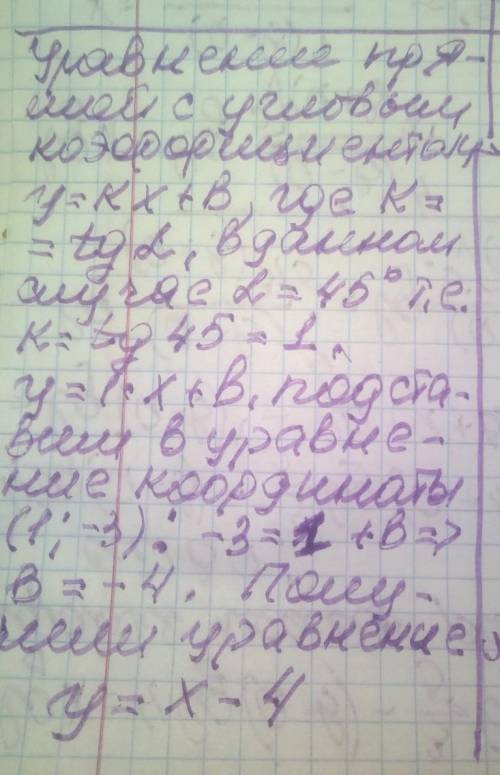 Уравнение пря-
мой с угловым
коэффициентом
y = kx + b, где k =
= tg α, в данном
случае α = 45° т.е.
k = tg 45 = 1.
y = 1·x + b, подста-
вим в уравне-
ние координаты
(1; -3): -3 = 1 + b =>
b = -4. Полу-
чили уравнение
y = x - 4